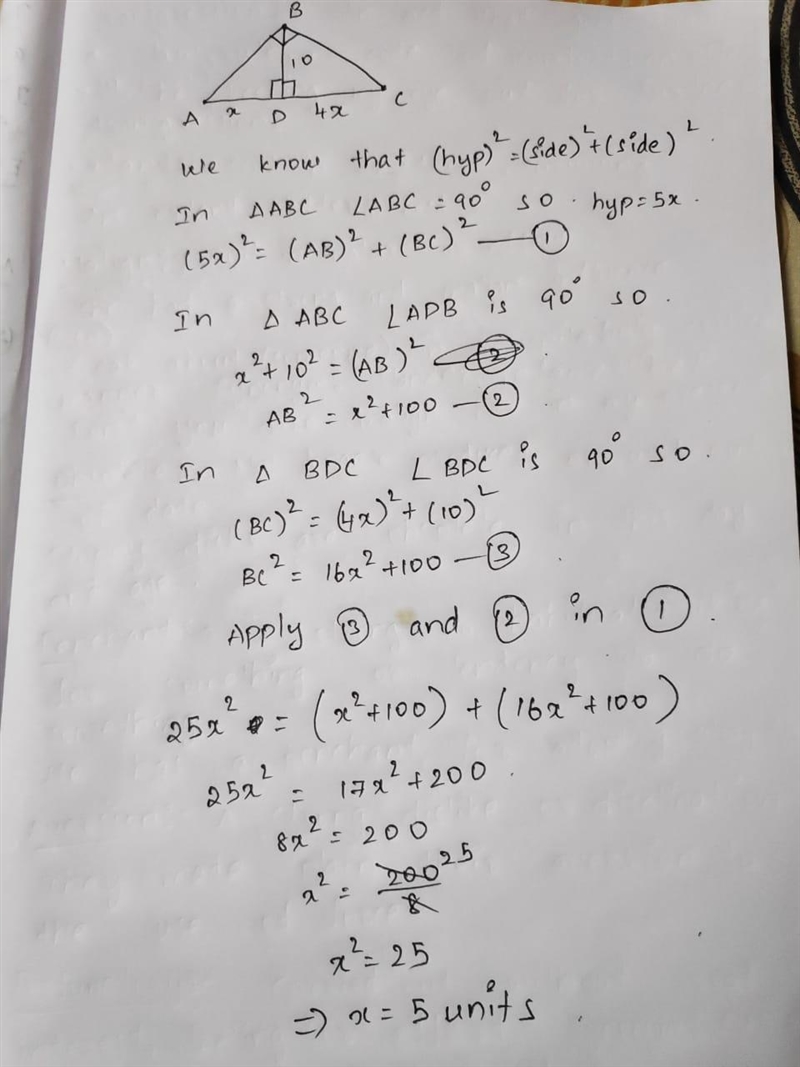 B
10
A x D 4x C
We know that (hyp)² = (side)² + (side)².
In ΔABC ∠ABC = 90° so. hyp = 5x.
(5x)² = (AB)² + (BC)² — ①
In Δ ABC ∠ADB is 90° so.
x² + 10² = (AB)² .
AB² = x² + 100 — ② .
In Δ BDC ∠BDC is 90° so.
(BC)² = (4x)² + (10)²
BC² = 16x² + 100 — ③ .
Apply ③ and ② in ① .
25x² = (x² + 100) + (16x² + 100)
25x² = 17x² + 200 .
8x² = 200
x² = 200/8 25
x² = 25
⇒ x = 5 units .